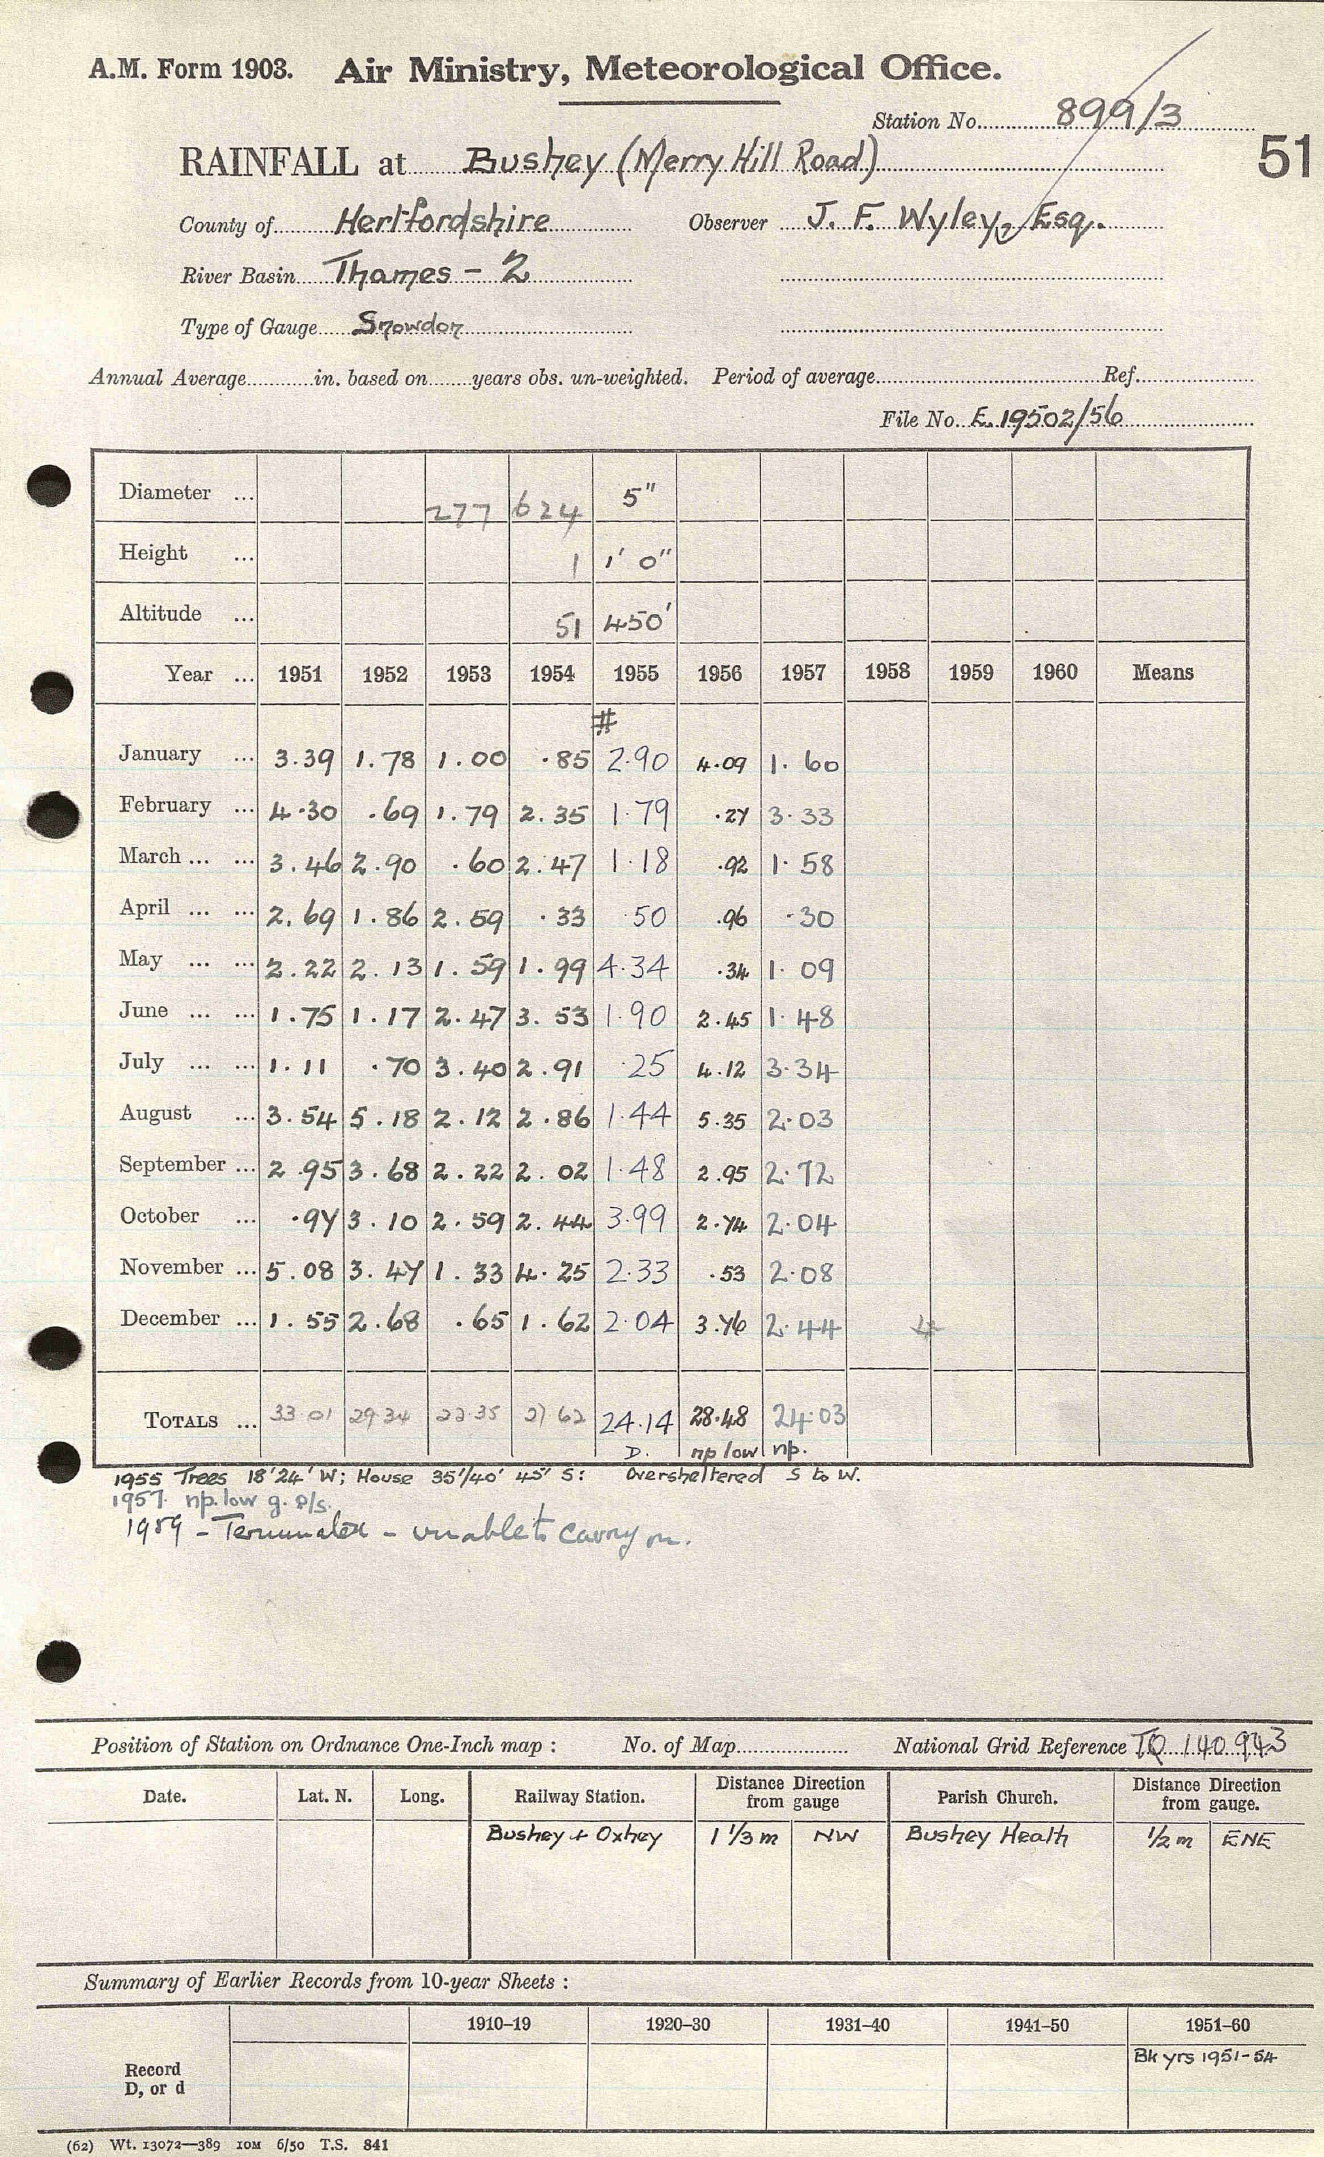 A.M. Form 1903. Air Ministry, Meteorological Office.
Station No. 899/3
51
RAINFALL at Bushey (Merry Hill Road)
County of Hertfordshire Observer J. F. Wyley, Esq.
River Basin Thames - 2
Type of Gauge Snowdon
Annual Average in. based on years obs. un-weighted. Period of average Ref.
File No. E. 19502/56
Diameter ... 277 624 5"
Height ... 1 1' 0"
Altitude ... 51 450'
Year ... 1951 1952 1953 1954 1955 1956 1957 1958 1959 1960 Means
#
January ... 3.39 1.78 1.00 .85 2.90 4.09 1.60
February ... 4.30 .69 1.79 2.35 1.79 .27 3.33
March ... ... 3.46 2.90 .60 2.47 1.18 .92 1.58
April ... ... 2.69 1.86 2.59 .33 .50 .96 .30
May ... ... 2.22 2.13 1.59 1.99 4.34 .34 1.09
June ... ... 1.75 1.17 2.47 3.53 1.90 2.45 1.48
July ... ... 1.11 .70 3.40 2.91 .25 4.12 3.34
August ... 3.54 5.18 2.12 2.86 1.44 5.35 2.03
September ... 2.95 3.68 2.22 2.02 1.48 2.95 2.72
October ... .97 3.10 2.59 2.44 3.99 2.74 2.04
November ... 5.08 3.47 1.33 4.25 2.33 .53 2.08
December ... 1.55 2.68 .65 1.62 2.04 3.76 2.44
TOTALS ... 33.01 29.34 22.35 27.62 24.14 28.48 24.03
D. np low np.
1955 Trees 18' 24' W; House 35'/40' 45' S: Oversheltered S to W.
1957. np. low g. P/s.
1959 - Terminated - unable to carry on.
Position of Station on Ordnance One-Inch map : No. of Map National Grid Reference TQ 140 943
Date. Lat. N. Long. Railway Station. Distance Direction from gauge Parish Church. Distance Direction from gauge.
Bushey + Oxhey 1 1/3 m NW Bushey Heath 1/2 m ENE
Summary of Earlier Records from 10-year Sheets :
1910–19 1920–30 1931–40 1941–50 1951–60
Record D, or d Bk yrs 1951-54
(62) Wt. 13072—389 10M 6/50 T.S. 841